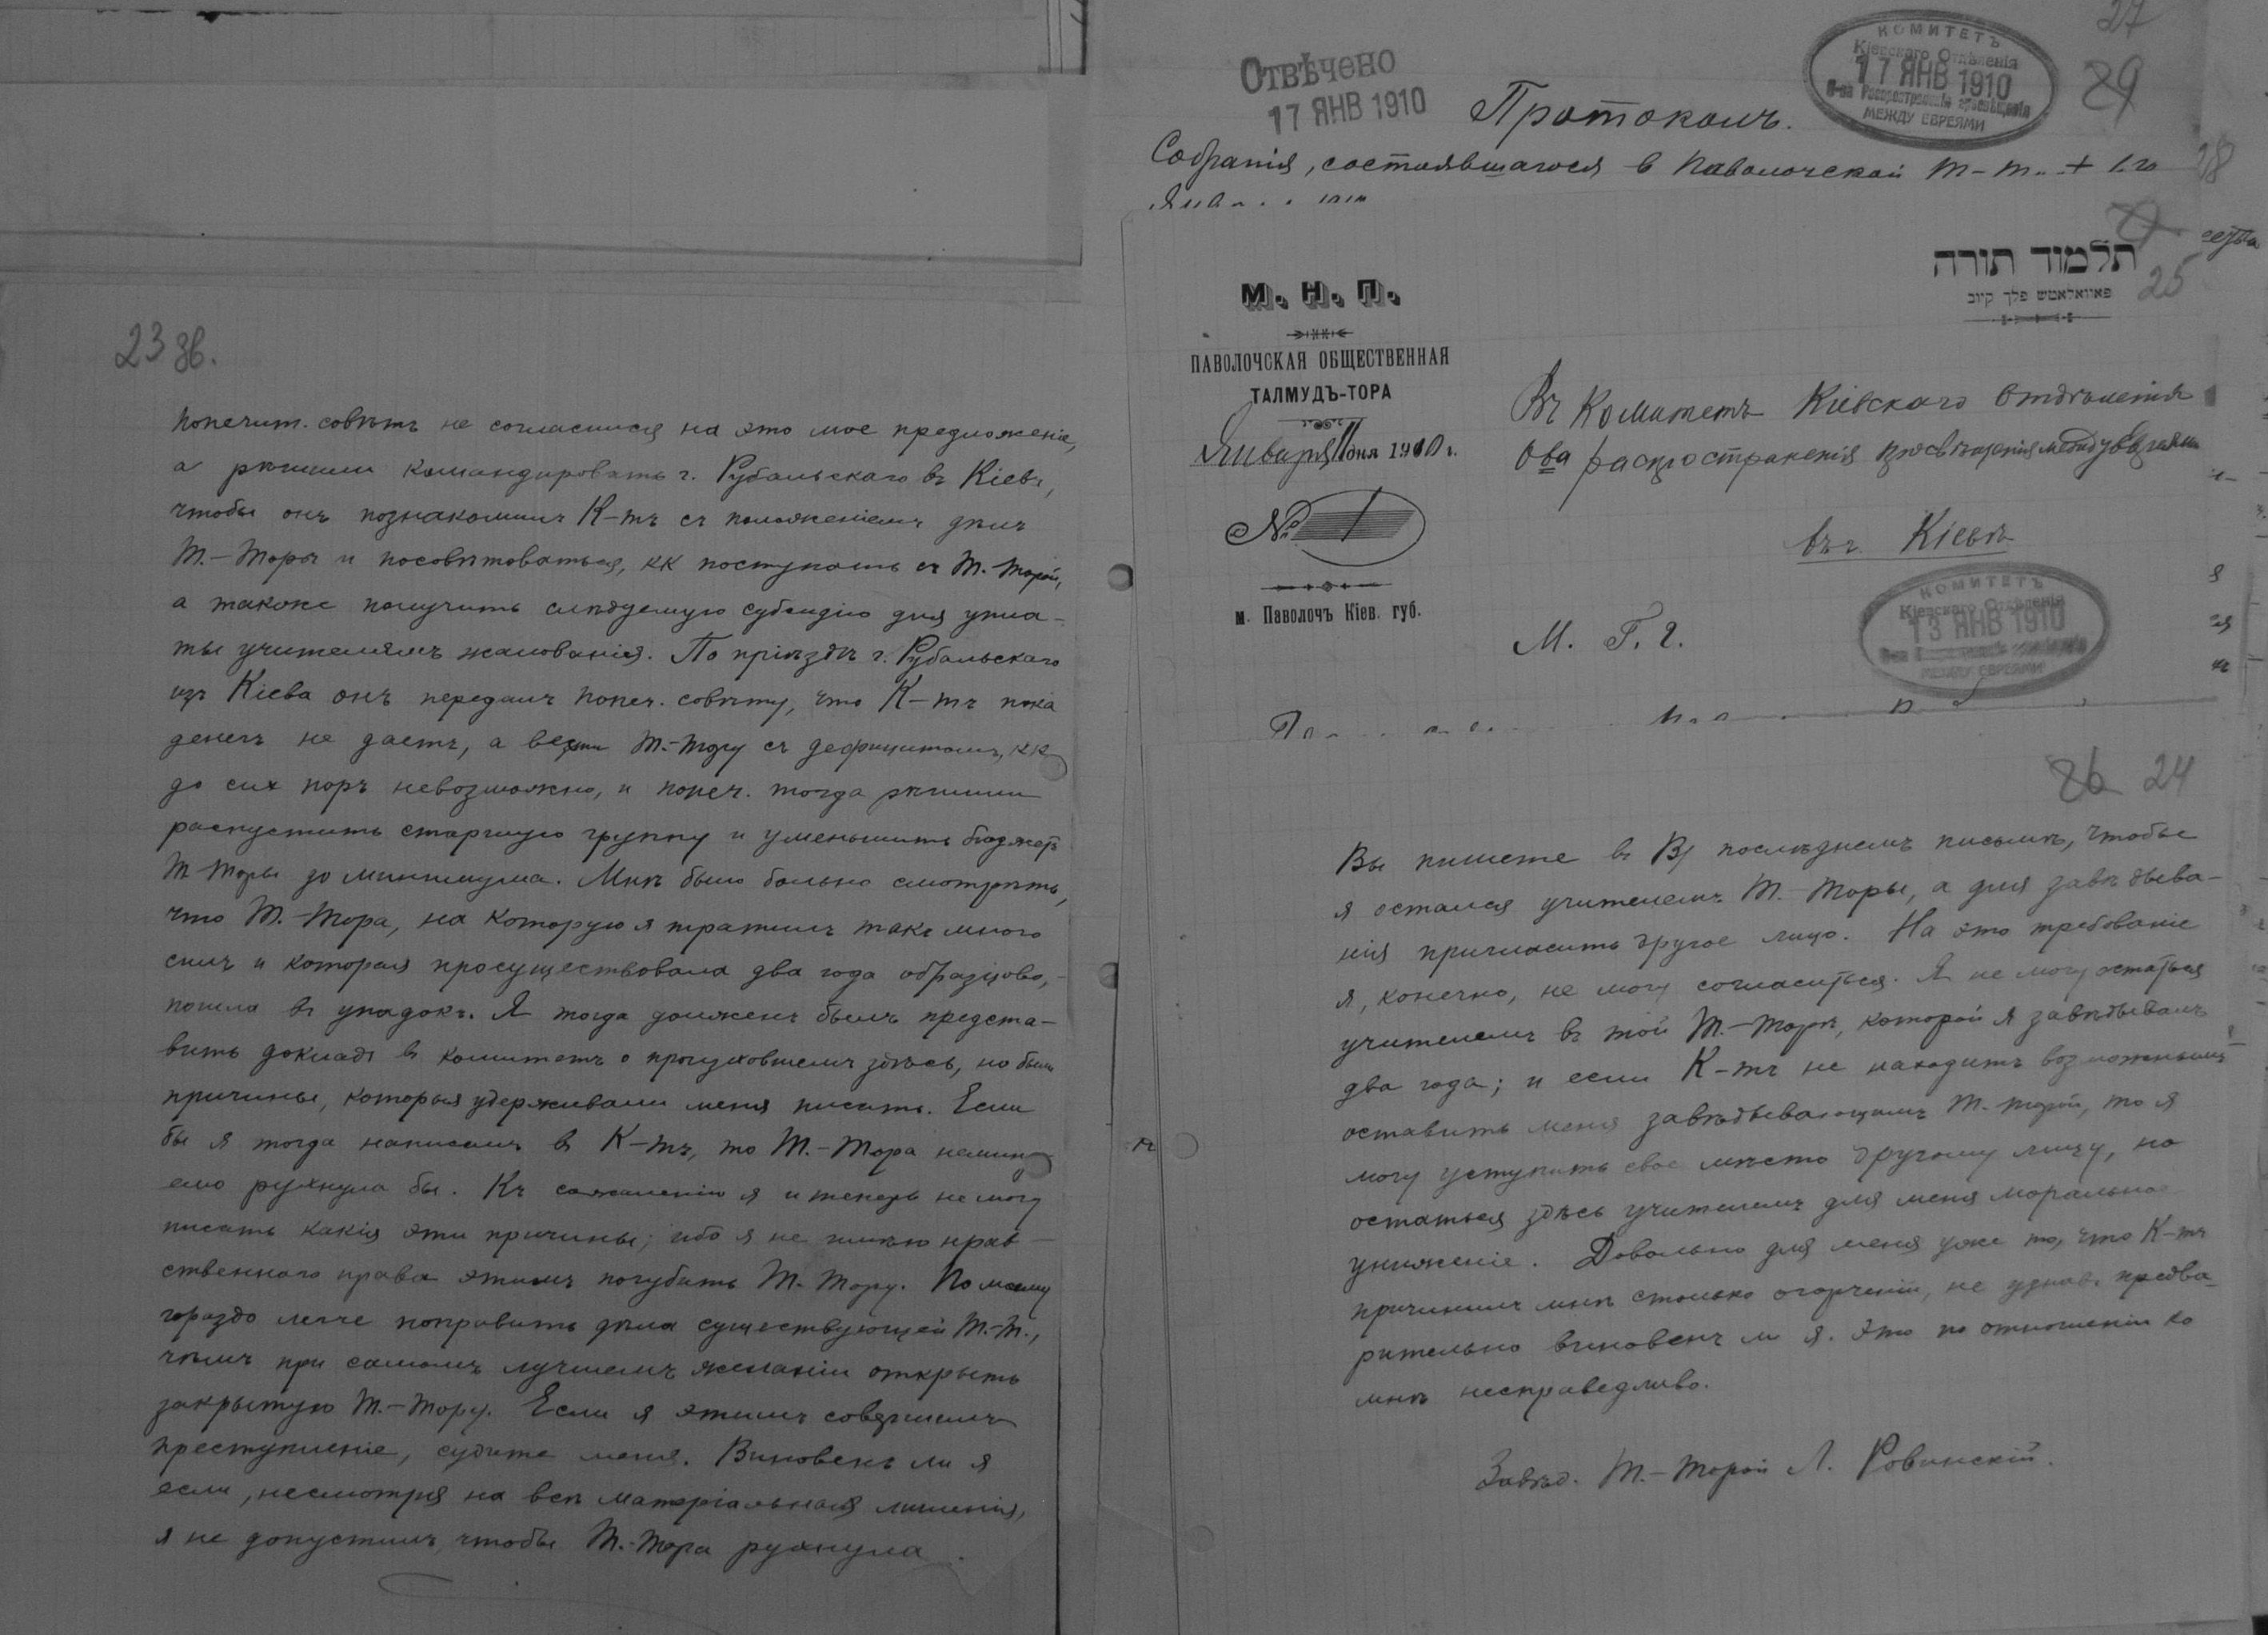 23 зв.
попечит. совѣтъ не согласился на это мое предложеніе,
а рѣшили командировать г. Рубальскаго въ Кіевъ,
чтобы онъ познакомилъ К-тъ съ положеніемъ дѣлъ
Т.-Торы и посовѣтоваться, кк поступать съ Т. Торой,
а также получить слѣдуемую субсидію для упла-
ты учителямъ жалованія. По пріѣздѣ г. Рубальскаго
изъ Кіева онъ передалъ попеч. совѣту, что К-тъ пока
денегъ не даетъ, а вести Т.-Тору съ дефицитомъ, кк
до сих поръ невозможно, и попеч. тогда рѣшили
распустить старшую группу и уменьшить бюджетъ
Т Торы до минимума. Мнѣ было больно смотрѣть,
что Т.-Тора, на которую я тратилъ такъ много
силъ и которая просуществовала два года образцово,
пошла въ упадокъ. Я тогда долженъ былъ предста-
вить докладъ въ комитетъ о происховшемъ здѣсь, но были
причины, которыя удерживали меня писать. Если
бы я тогда написалъ въ К-тъ, то Т.-Тора немину
емо рухнула бы. Къ сожаленію я и теперь не могу
писать какія эти причины; ибо я не имѣю нрав-
ственного права этимъ погубить Т. Тору. По моему
гораздо легче поправить дѣла существующей Т.-Т.,
чѣмъ при самомъ лучшемъ желаніи открыть
закрытую Т.-Тору. Если я этимъ совершилъ
преступленіе, судите меня. Виновенъ ли я
если, несмотря на всѣ матеріальныя лишенія,
я не допустилъ, чтобы Т.-Тора рухнула.
27
29
28
Отвѣчено
17 ЯНВ 1910
КОМИТЕТЪ
Кіевскаго Отдѣленія
17 ЯНВ 1910
О-ва Распространенія просвѣщенія
МЕЖДУ ЕВРЕЯМИ
Протоколъ.
Собранія, состоявшагося в Паволочской Т-Т.
М. Н. П.
ПАВОЛОЧСКАЯ ОБЩЕСТВЕННАЯ
ТАЛМУДЪ-ТОРА
Января 11 дня 1910 г.
№ 1
м. Паволочъ Кіев. губ.
תלמוד תורה
פאוואלאטש פלך קיוב
25
Въ Комитетъ Кіевскаго Отдѣленія
О-ва распространенія просвѣщенія между Евреями
въ г. Кіевѣ
КОМИТЕТЪ
Кіевскаго Отдѣленія
13 ЯНВ 1910
МЕЖДУ ЕВРЕЯМИ
М. Г. г.
26 24
Вы пишете въ В/ послѣднемъ письмѣ, чтобы
я остался учителемъ Т.-Торы, а для завѣдыва-
нія пригласить другое лицо. На это требованіе
я, конечно, не могу согласиться. Я не могу остаться
учителемъ въ той Т.-Торѣ, которой я завѣдывалъ
два года; и если К-тъ не находитъ возможнымъ
оставить меня завѣдывающимъ Т.-Торой, то я
могу уступить свое мѣсто другому лицу, но
остаться здѣсь учителемъ для меня морально
униженіе. Довольно для меня уже то, что К-тъ
причинилъ мнѣ столько огорченій, не узнавъ предва-
рительно виновенъ ли я. Это по отношеніи ко
мнѣ несправедливо.
Завѣд. Т.-Торой Л. Ровинскій.